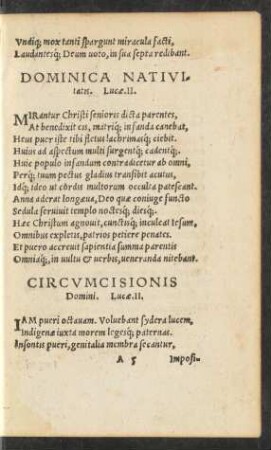 Vndiq; mox tanti spargunt miracula facti,
Laudantesq; Deum uoto, in sua septa redibant.
DOMINICA NATIVI-
tatis. Lucæ.II.
MIRantur Christi senioris dicta parentes,
At benedixit eis, matriq; infanda canebat,
Heus puer iste tibi fletus lachrimasq; ciebit.
Huius ad aspectum multi surgentq; cadentq;.
Huic populo infandum contradicetur ab omni,
Perq; tuum pectus gladius transibit acutus,
Idq; ideo ut cordis multorum occulta patescant.
Anna aderat longæua, Deo quæ coniuge functo
Sedula seruiuit templo noctesq; diesq;.
Hæc Christum agnouit, cunctisq; inculcat Iesum,
Omnibus expletis, patrios petiere penates.
Et puero accreuit sapientia summa parentis
Omniaq;, in uultu & uerbis, ueneranda nitebant.
CIRCVMCISIONIS
Domini. Lucæ.II.
IAM pueri octauam. Voluebant sydera lucem,
Indigenæ iuxta morem legesq; paternas.
Insontis pueri, genitalia membra secantur,
A 5 Imposi-